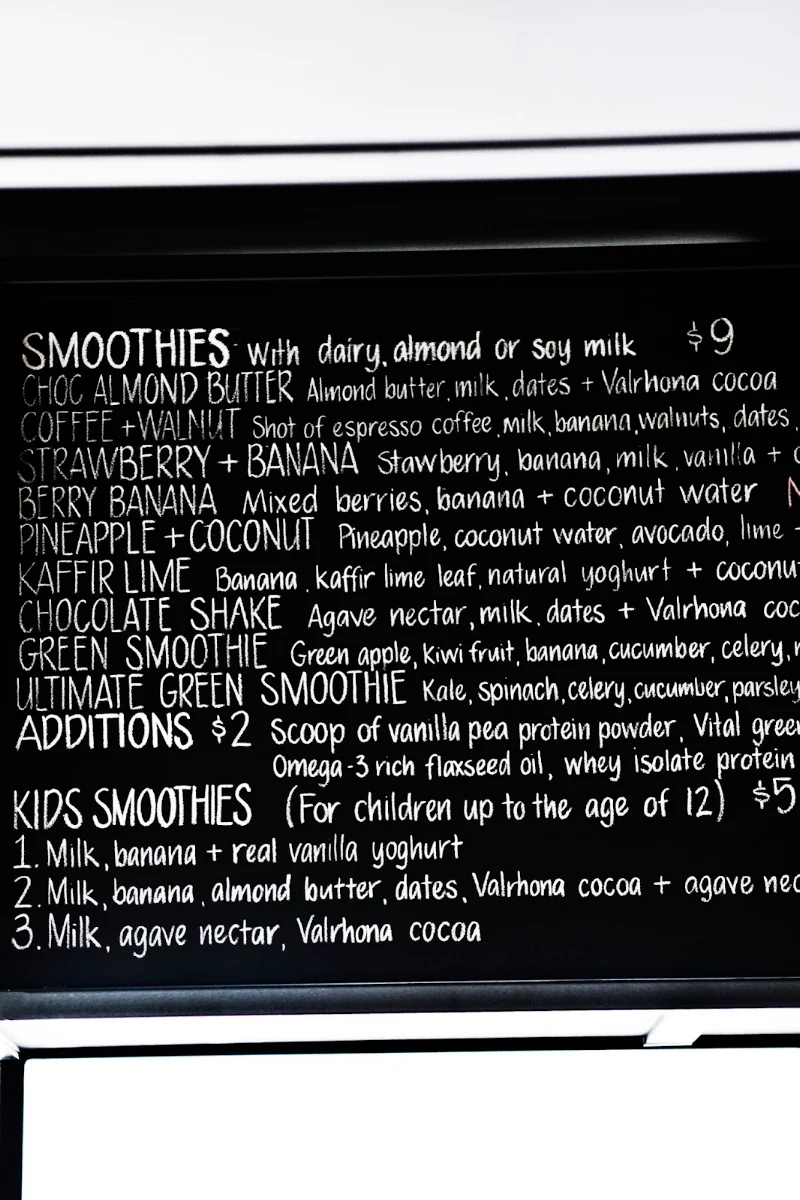 SMOOTHIES with dairy, almond or soy milk $9
CHOC ALMOND BUTTER Almond butter, milk, dates + Valrhona cocoa
COFFEE + WALNUT Shot of espresso coffee, milk, banana, walnuts, dates,
STRAWBERRY + BANANA Stawberry, banana, milk, vanilla +
BERRY BANANA Mixed berries, banana + coconut water
PINEAPPLE + COCONUT Pineapple, coconut water, avocado, lime
KAFFIR LIME Banana, kaffir lime leaf, natural yoghurt + coconu
CHOCOLATE SHAKE Agave nectar, milk, dates + Valrhona coc
GREEN SMOOTHIE Green apple, kiwi fruit, banana, cucumber, celery,
ULTIMATE GREEN SMOOTHIE Kale, spinach, celery, cucumber, parsley
ADDITIONS $2 Scoop of vanilla pea protein powder, Vital gree
Omega-3 rich flaxseed oil, whey isolate protein
KIDS SMOOTHIES (For children up to the age of 12) $5
1. Milk, banana + real vanilla yoghurt
2. Milk, banana, almond butter, dates, Valrhona cocoa + agave nec
3. Milk, agave nectar, Valrhona cocoa